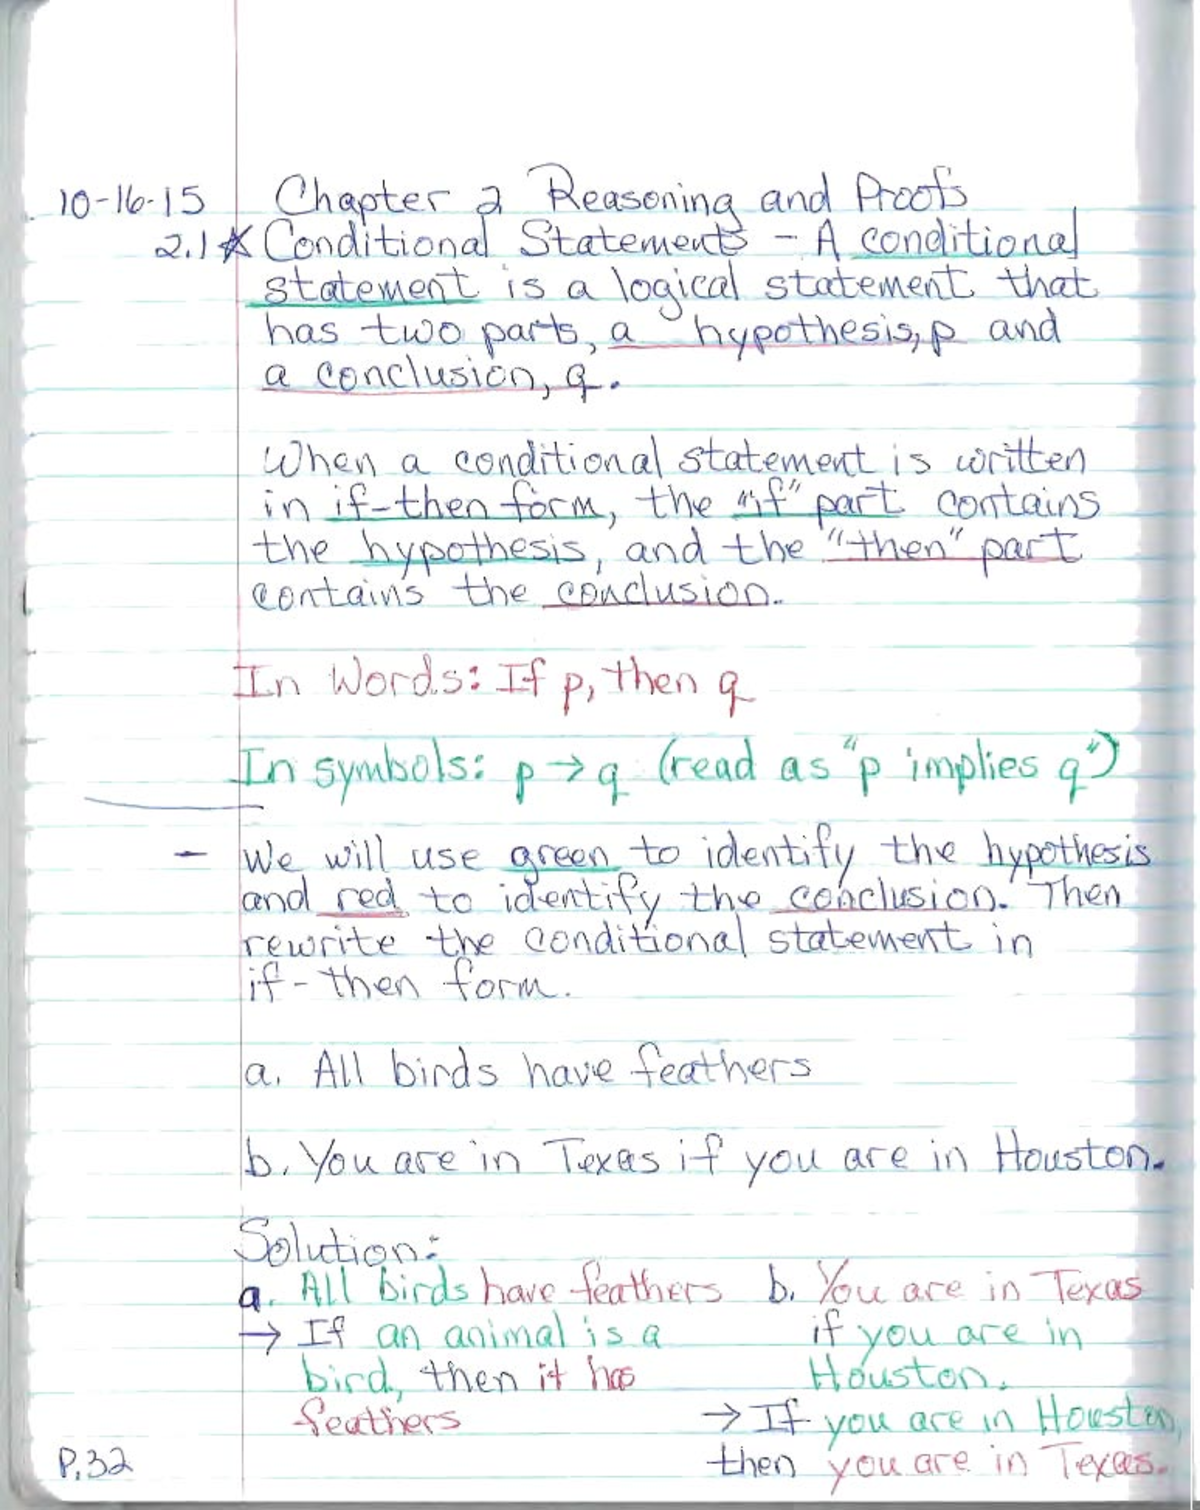 10-16-15 Chapter 2 Reasoning and Proofs
2.1 * Conditional Statements - A conditional
statement is a logical statement that
has two parts, a hypothesis, p and
a conclusion, q.
When a conditional statement is written
in if-then form, the "if" part contains
the hypothesis, and the "then" part
contains the conclusion.
In Words: If p, then q
In symbols: p → q (read as "p implies q")
- We will use green to identify the hypothesis
and red to identify the conclusion. Then
rewrite the conditional statement in
if-then form.
a. All birds have feathers
b. You are in Texas if you are in Houston.
Solution:
a. All birds have feathers
→ If an animal is a
bird, then it has
feathers
b. You are in Texas
if you are in
Houston.
→ If you are in Houston,
then you are in Texas.
P.32